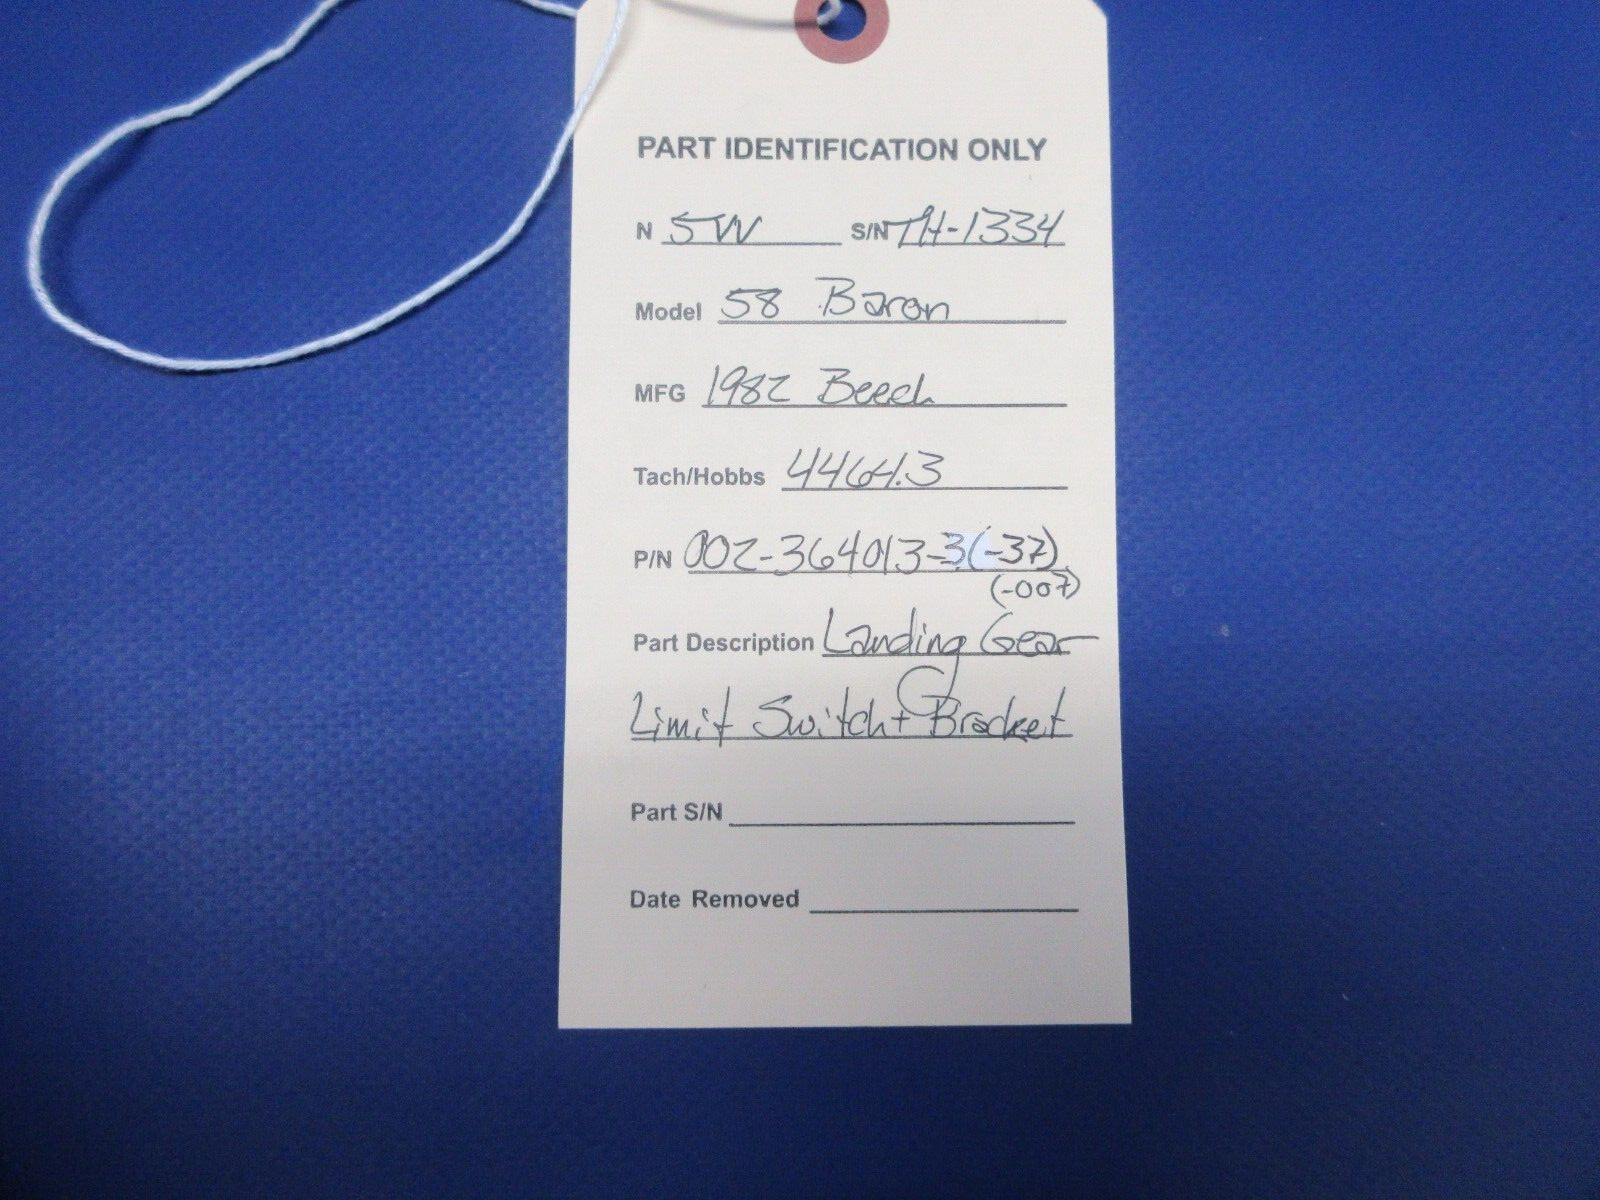 PART IDENTIFICATION ONLY
N 5W S/N TH-1334
Model 58 Baron
MFG 1982 Beech
Tach/Hobbs 4464.3
P/N 002-364013-3(-37)
(-007)
Part Description Landing Gear
Limit Switch + Bracket
Part S/N
Date Removed